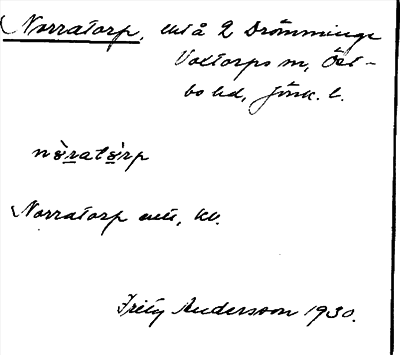 Norratorp, utå 2 Drömminge
Voxtorps sn, Öst-
bo hd, Jönk. l.
nòratòrp
Norratorp enl. kv.
Fritz Andersson 1930.